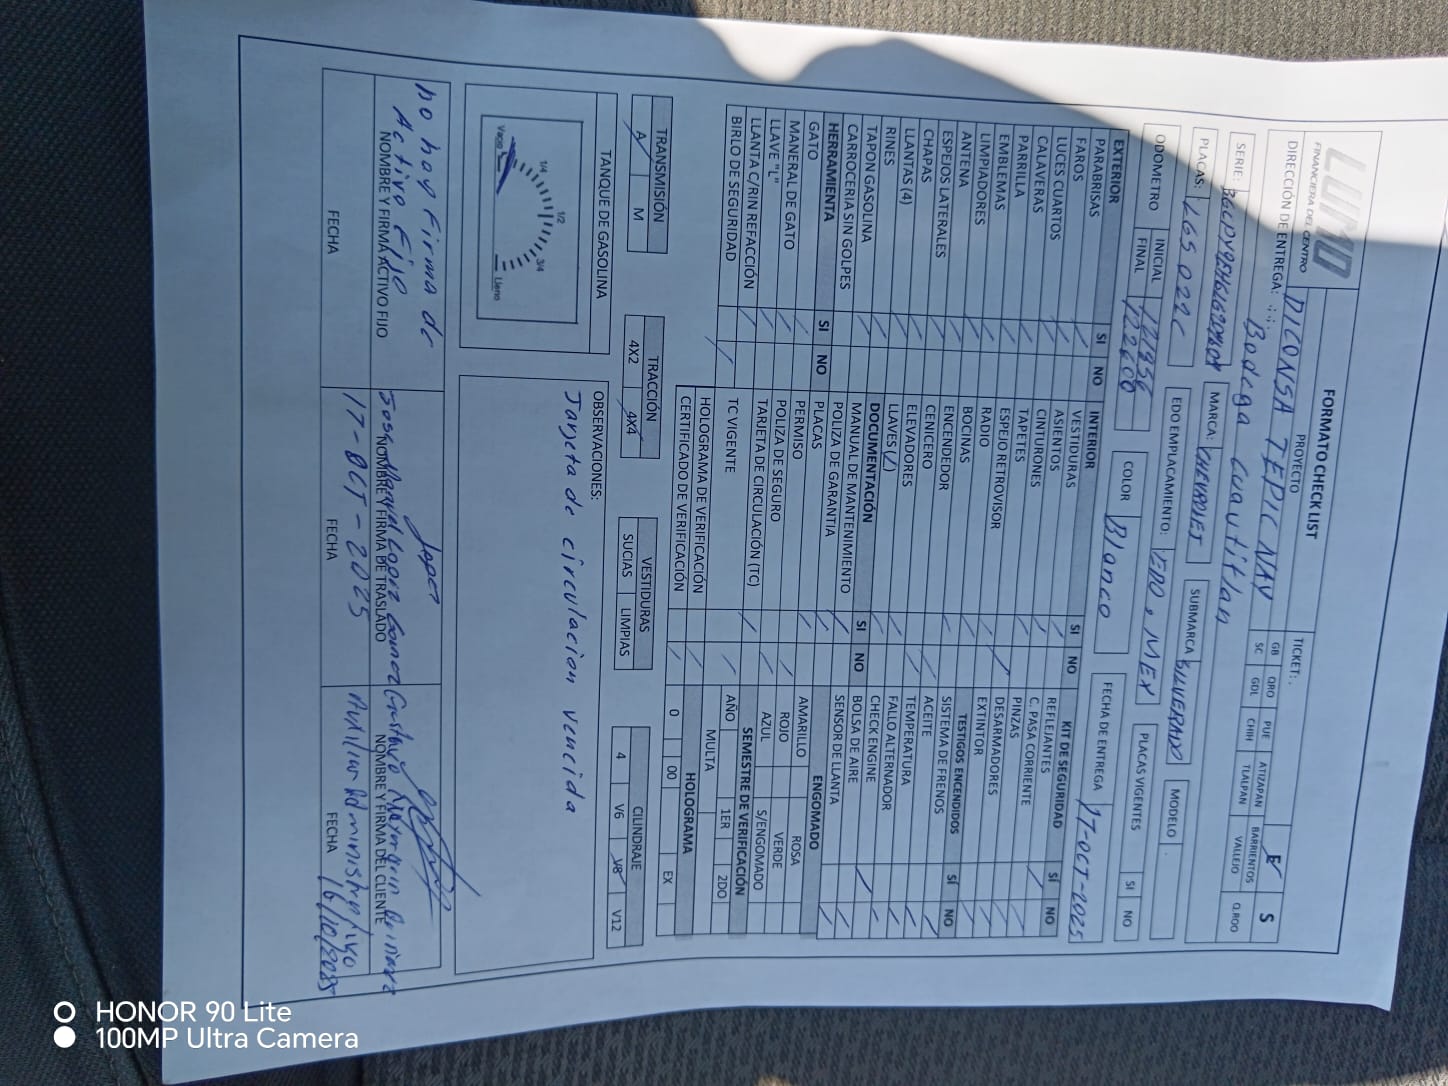 LUMO
FINANCIERA DEL CENTRO
FORMATO CHECK LIST
PROYECTO
DICONSA TEPIC NAY
TICKET:
DIRECCIÓN DE ENTREGA:
Bodega Cuautitlan
GB QRO PUE ATIZAPAN BARRIENTOS
E S
SC GDL CHIH TLALPAN VALLEJO Q.ROO
SERIE:
MARCA: CHEVROLET
SUBMARCA SILVERADO
MODELO
PLACAS: LG5 022C
EDO EMPLACAMIENTO: EDO, MEX
PLACAS VIGENTES SI NO
ODOMETRO
INICIAL
FINAL
COLOR Blanco
FECHA DE ENTREGA 17-OCT-2025
EXTERIOR SI NO
PARABRISAS
FAROS
LUCES CUARTOS
CALAVERAS
PARRILLA
EMBLEMAS
LIMPIADORES
ANTENA
ESPEJOS LATERALES
CHAPAS
LLANTAS (4)
RINES
TAPON GASOLINA
CARROCERIA SIN GOLPES
HERRAMIENTA SI NO
GATO
MANERAL DE GATO
LLAVE "L"
LLANTA C/RIN REFACCIÓN
BIRLO DE SEGURIDAD
INTERIOR SI NO
VESTIDURAS
ASIENTOS
CINTURONES
TAPETES
ESPEJO RETROVISOR
RADIO
BOCINAS
ENCENDEDOR
CENICERO
ELEVADORES
LLAVES( )
DOCUMENTACIÓN SI NO
MANUAL DE MANTENIMIENTO
POLIZA DE GARANTIA
PLACAS
PERMISO
POLIZA DE SEGURO
TARJETA DE CIRCULACIÓN (TC)
TC VIGENTE
HOLOGRAMA DE VERIFICACIÓN
CERTIFICADO DE VERIFICACIÓN
KIT DE SEGURIDAD SÍ NO
REFLEJANTES
C. PASA CORRIENTE
PINZAS
DESARMADORES
EXTINTOR
TESTIGOS ENCENDIDOS SÍ NO
SISTEMA DE FRENOS
ACEITE
TEMPERATURA
FALLO ALTERNADOR
CHECK ENGINE
BOLSA DE AIRE
SENSOR DE LLANTA
ENGOMADO
AMARILLO ROSA
ROJO VERDE
AZUL S/ENGOMADO
SEMESTRE DE VERIFICACIÓN
AÑO 1ER 2DO
MULTA
HOLOGRAMA
0 00 EX
TRANSMISIÓN
A M
TRACCIÓN
4X2 4X4
VESTIDURAS
SUCIAS LIMPIAS
CILINDRAJE
4 V6 V8 V12
TANQUE DE GASOLINA
Vacio 1/4 1/2 3/4 Lleno
OBSERVACIONES:
Tarjeta de circulacion vencida
no hay firma de
Activo Fijo
NOMBRE Y FIRMA ACTIVO FIJO
FECHA
Jose Manuel Lopez Gomez
NOMBRE Y FIRMA DE TRASLADO
17-OCT-2025
FECHA
Gustavo
NOMBRE Y FIRMA DEL CLIENTE
Auxiliar Administrativo
FECHA 16/10/2025
HONOR 90 Lite
100MP Ultra Camera